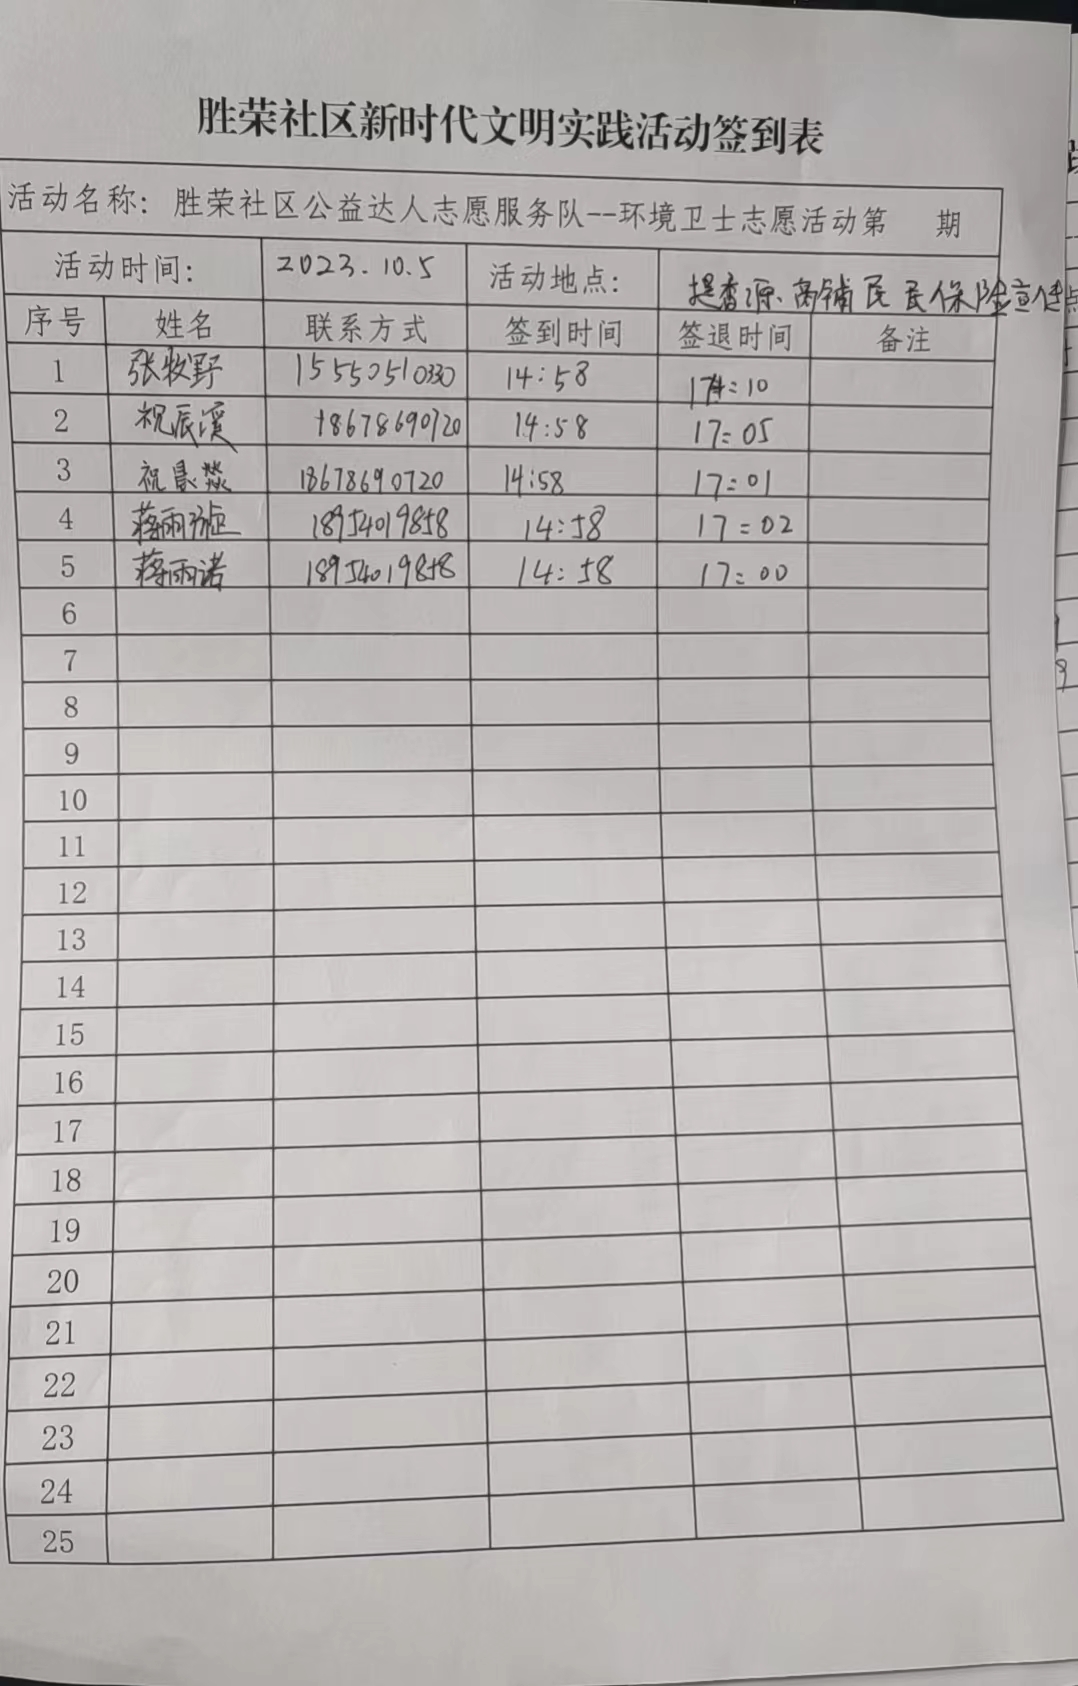 胜荣社区新时代文明实践活动签到表
活动名称：胜荣社区公益达人志愿服务队--环境卫士志愿活动第 期
活动时间： 2023.10.5 活动地点： 提香源.商铺民 民保险宣传点
序号 姓名 联系方式 签到时间 签退时间 备注
1 张牧野 15550510330 14:58 17:10
2 祝辰溪 18678690720 14:58 17:05
3 祝晨燚 18678690720 14:58 17:01
4 蒋雨旋 18954019858 14:58 17:02
5 蒋雨诺 18954019858 14:58 17:00
6
7
8
9
10
11
12
13
14
15
16
17
18
19
20
21
22
23
24
25